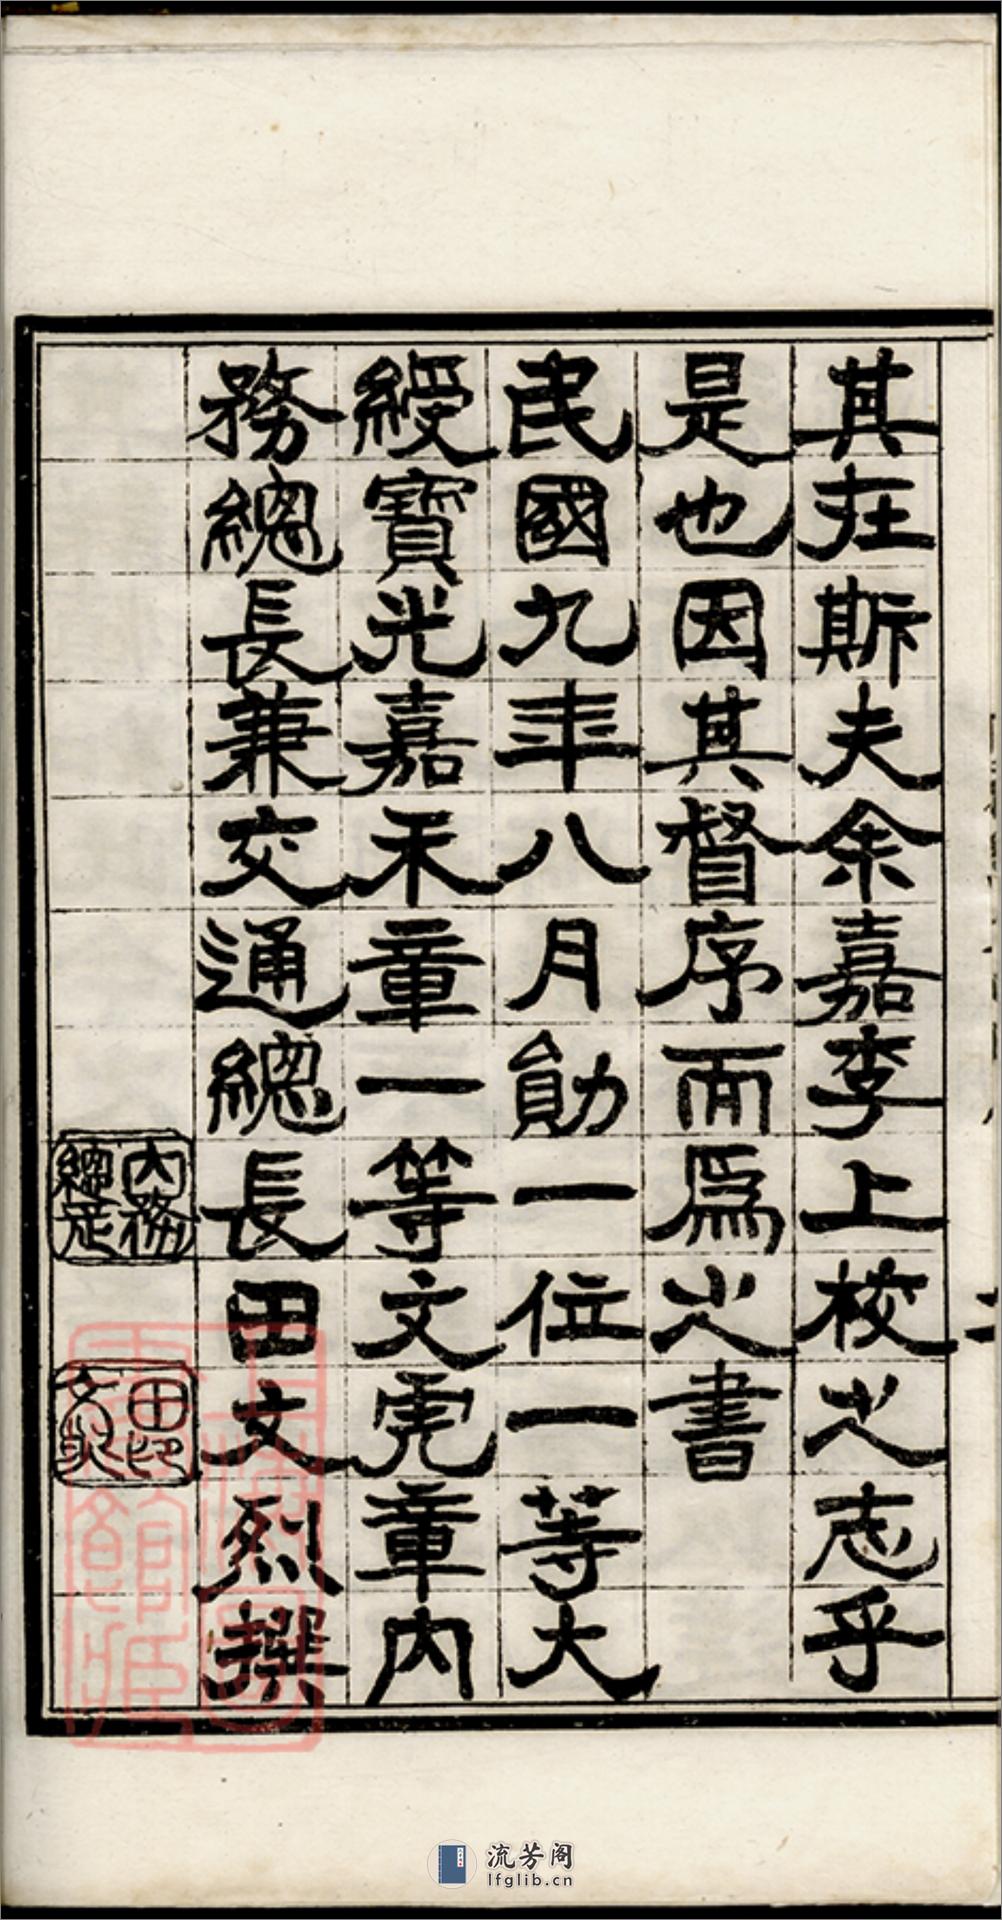 其在斯夫余嘉李上校之志乎
是也因其督序而爲之書
民國九年八月勛一位一等大
綬寶光嘉禾章一等文虎章內
務總長兼交通總長田文烈撰
內務總長
田文烈印
流芳阁
lfglib.cn